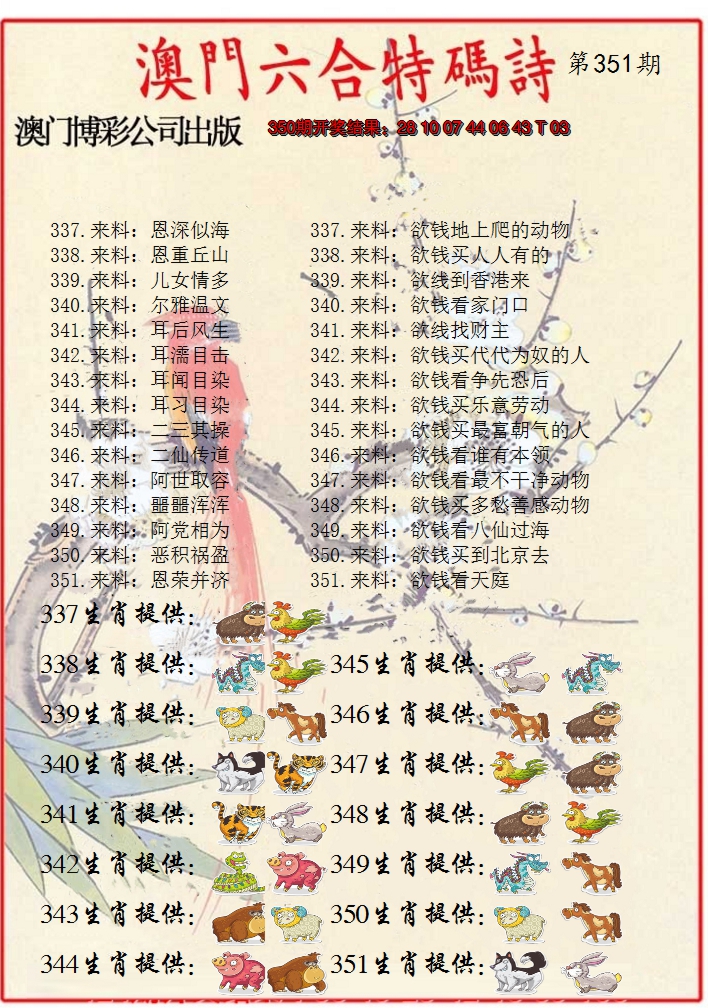 澳門六合特碼詩 第351期
澳门博彩公司出版 350期开奖结果：28 10 07 44 06 43 T 03
337.来料：恩深似海 337.来料：欲钱地上爬的动物
338.来料：恩重丘山 338.来料：欲钱买人人有的
339.来料：儿女情多 339.来料：欲线到香港来
340.来料：尔雅温文 340.来料：欲钱看家门口
341.来料：耳后风生 341.来料：欲线找财主
342.来料：耳濡目击 342.来料：欲钱买代代为奴的人
343.来料：耳闻目染 343.来料：欲钱看争先恐后
344.来料：耳习目染 344.来料：欲钱买乐意劳动
345.来料：二三其操 345.来料：欲钱买最富朝气的人
346.来料：二仙传道 346.来料：欲钱看谁有本领
347.来料：阿世取容 347.来料：欲钱看最不干净动物
348.来料：噩噩浑浑 348.来料：欲钱买多愁善感动物
349.来料：阿党相为 349.来料：欲钱看八仙过海
350.来料：恶积祸盈 350.来料：欲钱买到北京去
351.来料：恩荣并济 351.来料：欲钱看天庭
337生肖提供：
338生肖提供： 345生肖提供：
339生肖提供： 346生肖提供：
340生肖提供： 347生肖提供：
341生肖提供： 348生肖提供：
342生肖提供： 349生肖提供：
343生肖提供： 350生肖提供：
344生肖提供： 351生肖提供：